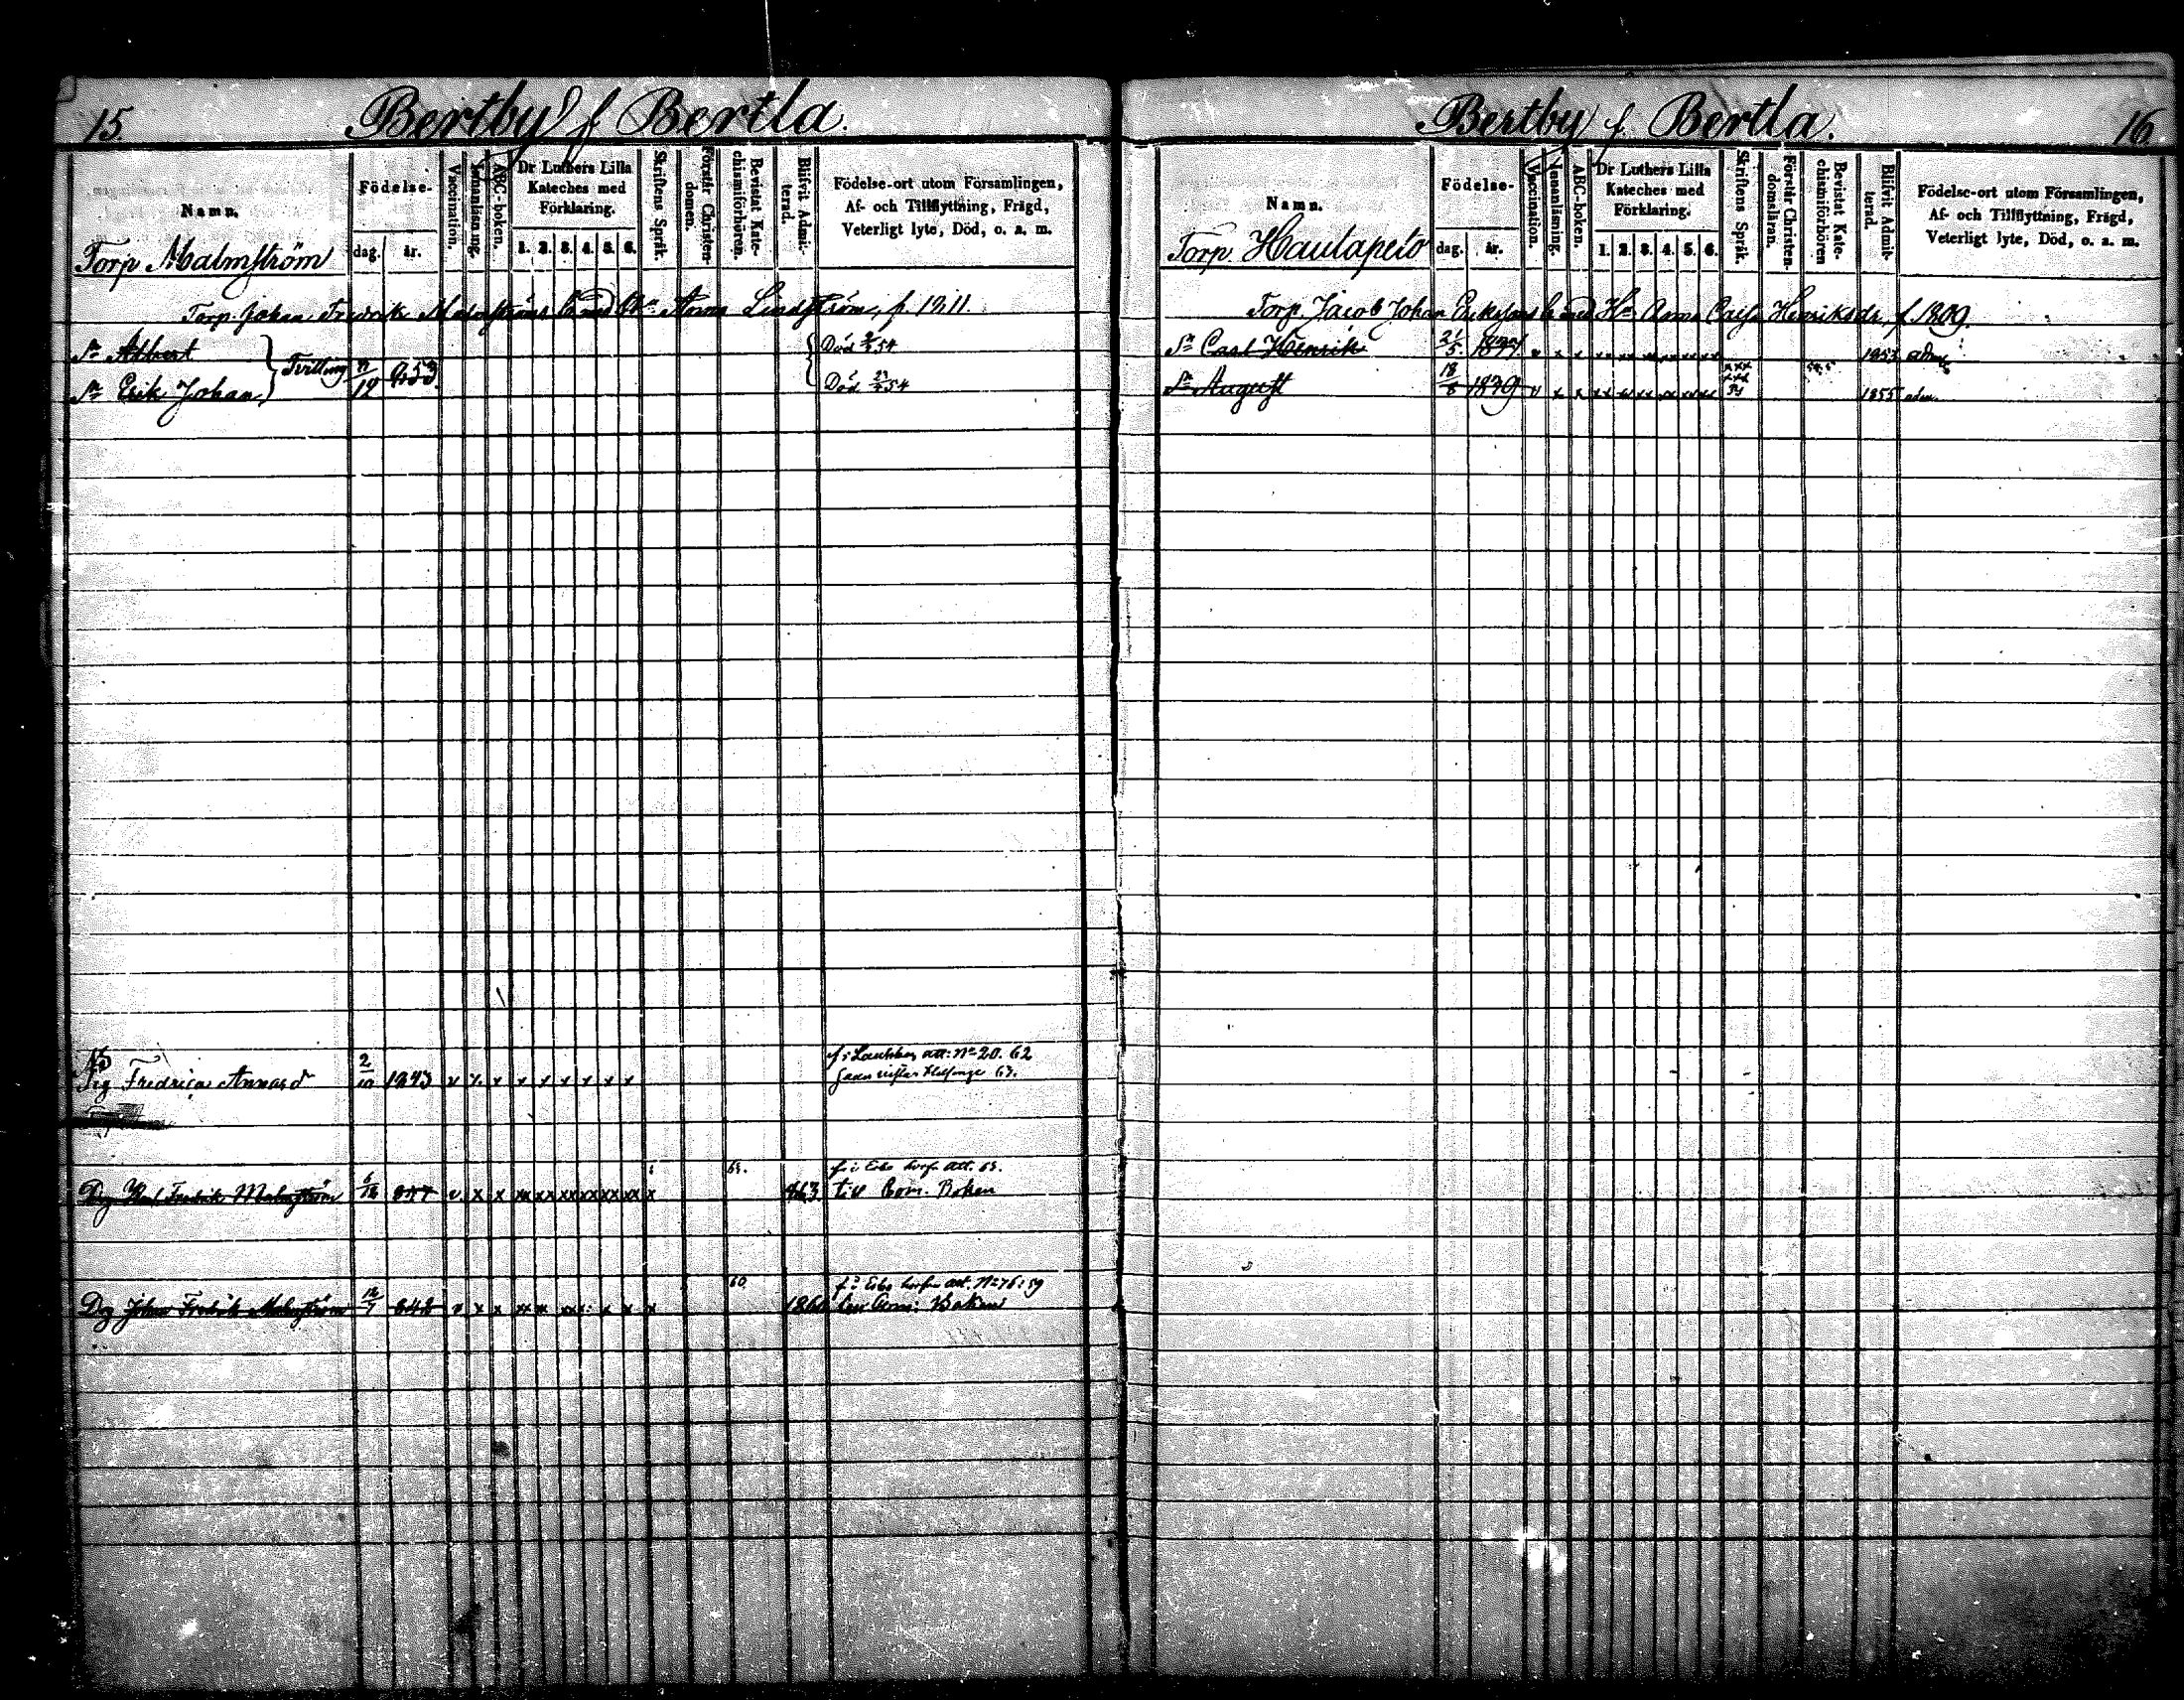 15
Bertby f Bertla.
Namn.
Födelse-
dag.
år.
Vaccination.
Innanläsning.
ABC-boken.
Dr Luthers Lilla
Kateches med
Förklaring.
1. 2. 3. 4. 5. 6.
Skriftens Språk.
Förstår Christen-
domen.
Bevistat Kate-
chismiförhören.
Blifvit Admit-
terad.
Födelse-ort utom Församlingen,
Af- och Tillflyttning, Frägd,
Veterligt lyte, Död, o. a. m.
Torp Malmström
Torp. Johan Fredrik Malmströms b med Hu Anna Lindström, f. 1811.
Sn Albert
Tvilling
Död 54
Sn Erik Johan
12
853
Död 54
15
Pig Fredrica Annasdr 2/10 1843 v x x x x x x x x
f. i att: No 20. 62
63.
65.
Drg Fredrik Malmström 6/12 847 v x x xx xx xx xx xx xx x
863 till Com. Boken
60
att. No 76: 59
Drg Johan Fredrik Malmström 12/7 842 v x x
1860 Com: Boken
Bertby f Bertla.
16
Namn.
Födelse-
dag.
år.
Vaccination.
Innanläsning.
ABC-boken.
Dr Luthers Lilla
Kateches med
Förklaring.
1. 2. 3. 4. 5. 6.
Skriftens Språk.
Förstår Christen-
domsläran.
Bevistat Kate-
chismiförhören
Blifvit Admit-
terad.
Födelse-ort utom Församlingen,
Af- och Tillflyttning, Frägd,
Veterligt lyte, Död, o. a. m.
Torp. Hautapelto
Torp. Jacob Johan Erikssons b med Hu Anna Caisa Henriksdr, f. 1809.
Sn Carl Henrik 21/5 v x x 1853
Sn August 18/8 1839 v x x xx xx xx xx xx xx 1855 adm.